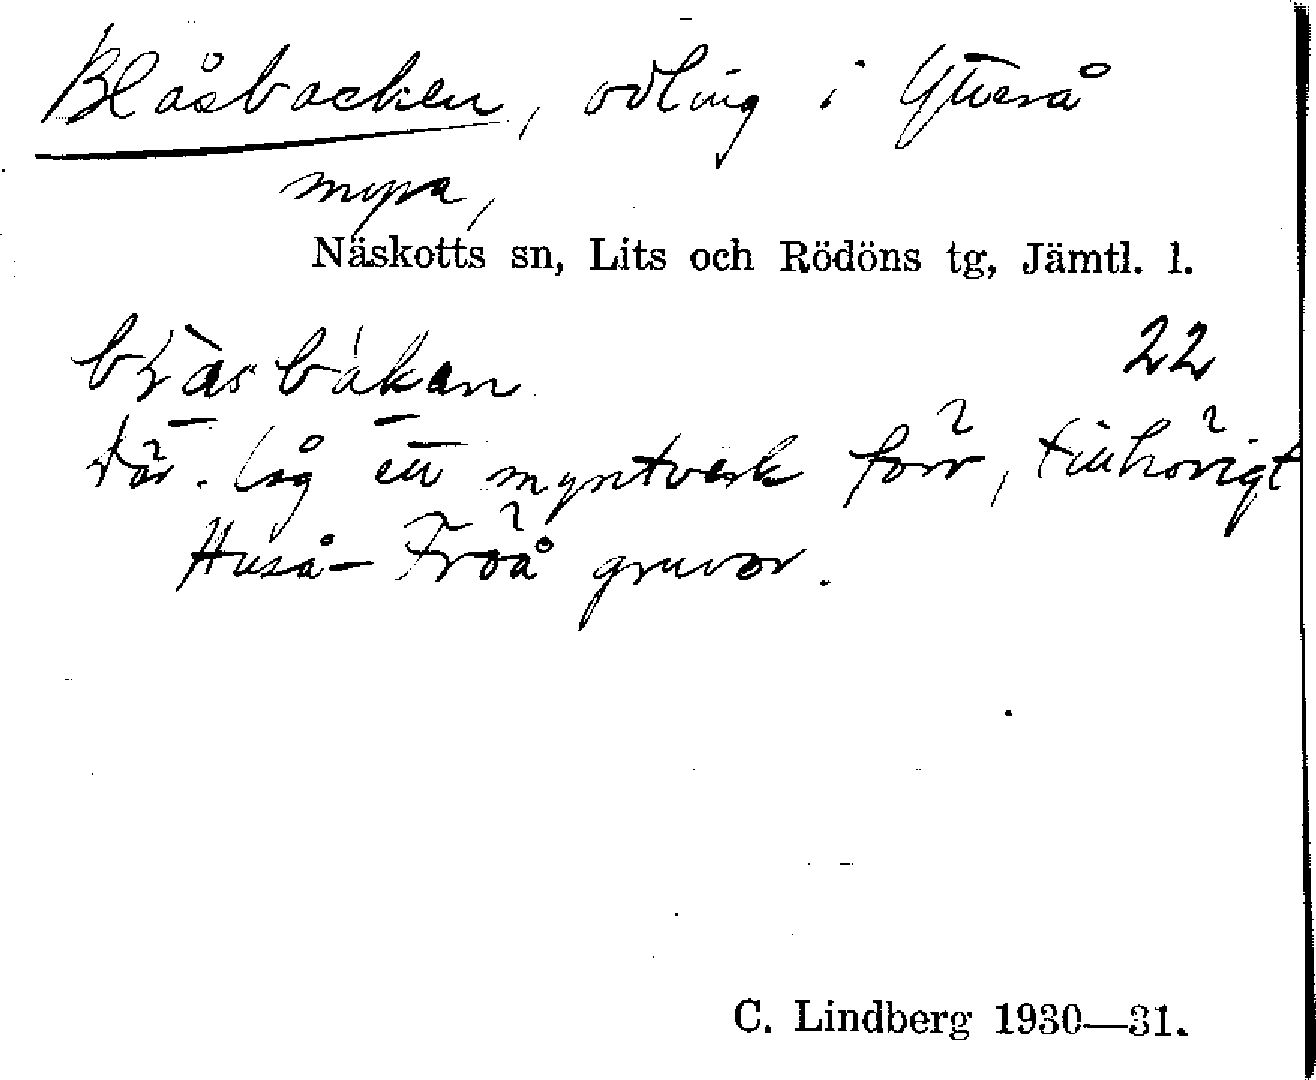 Blåsbacken, odling i Ytterå
myra,
Näskotts sn, Lits och Rödöns tg, Jämtl. l.
22
Där låg ett myntverk förr, tillhörigt
Huså- Fröå gruvor.
C. Lindberg 1930—31.